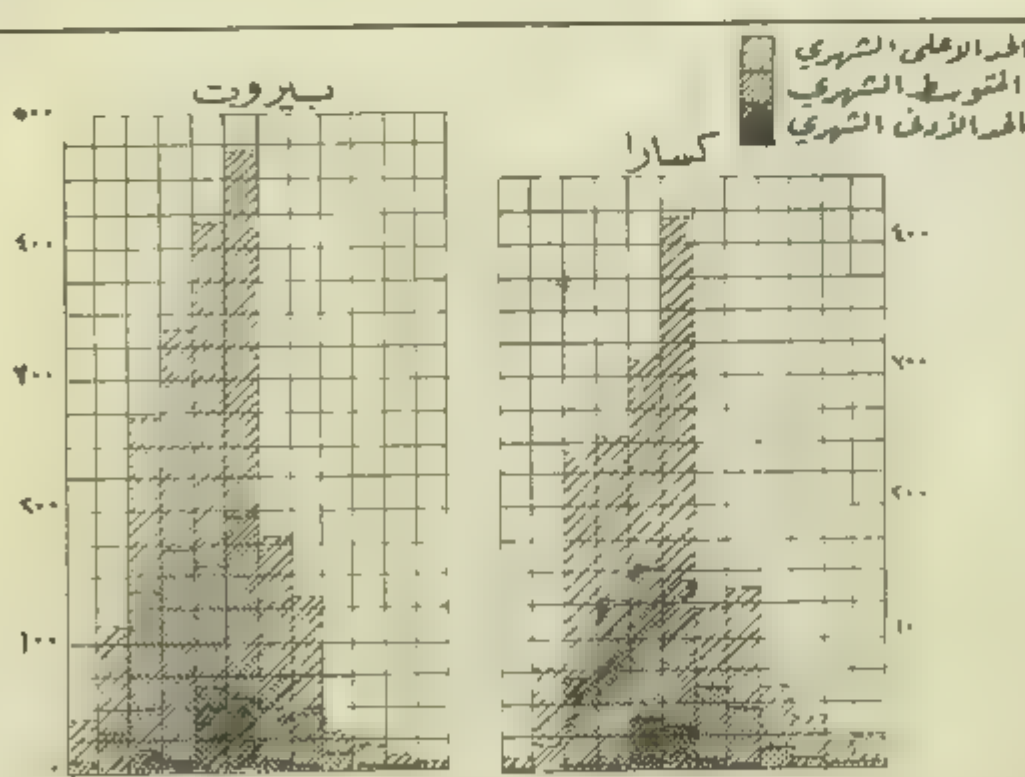 الحد الاعلى الشهري
المتوسط الشهري
الحد الأدنى الشهري
بيروت
كسارا
٥٠٠
٤٠٠
٣٠٠
٢٠٠
١٠٠
٤٠٠
٣٠٠
٢٠٠
١٠